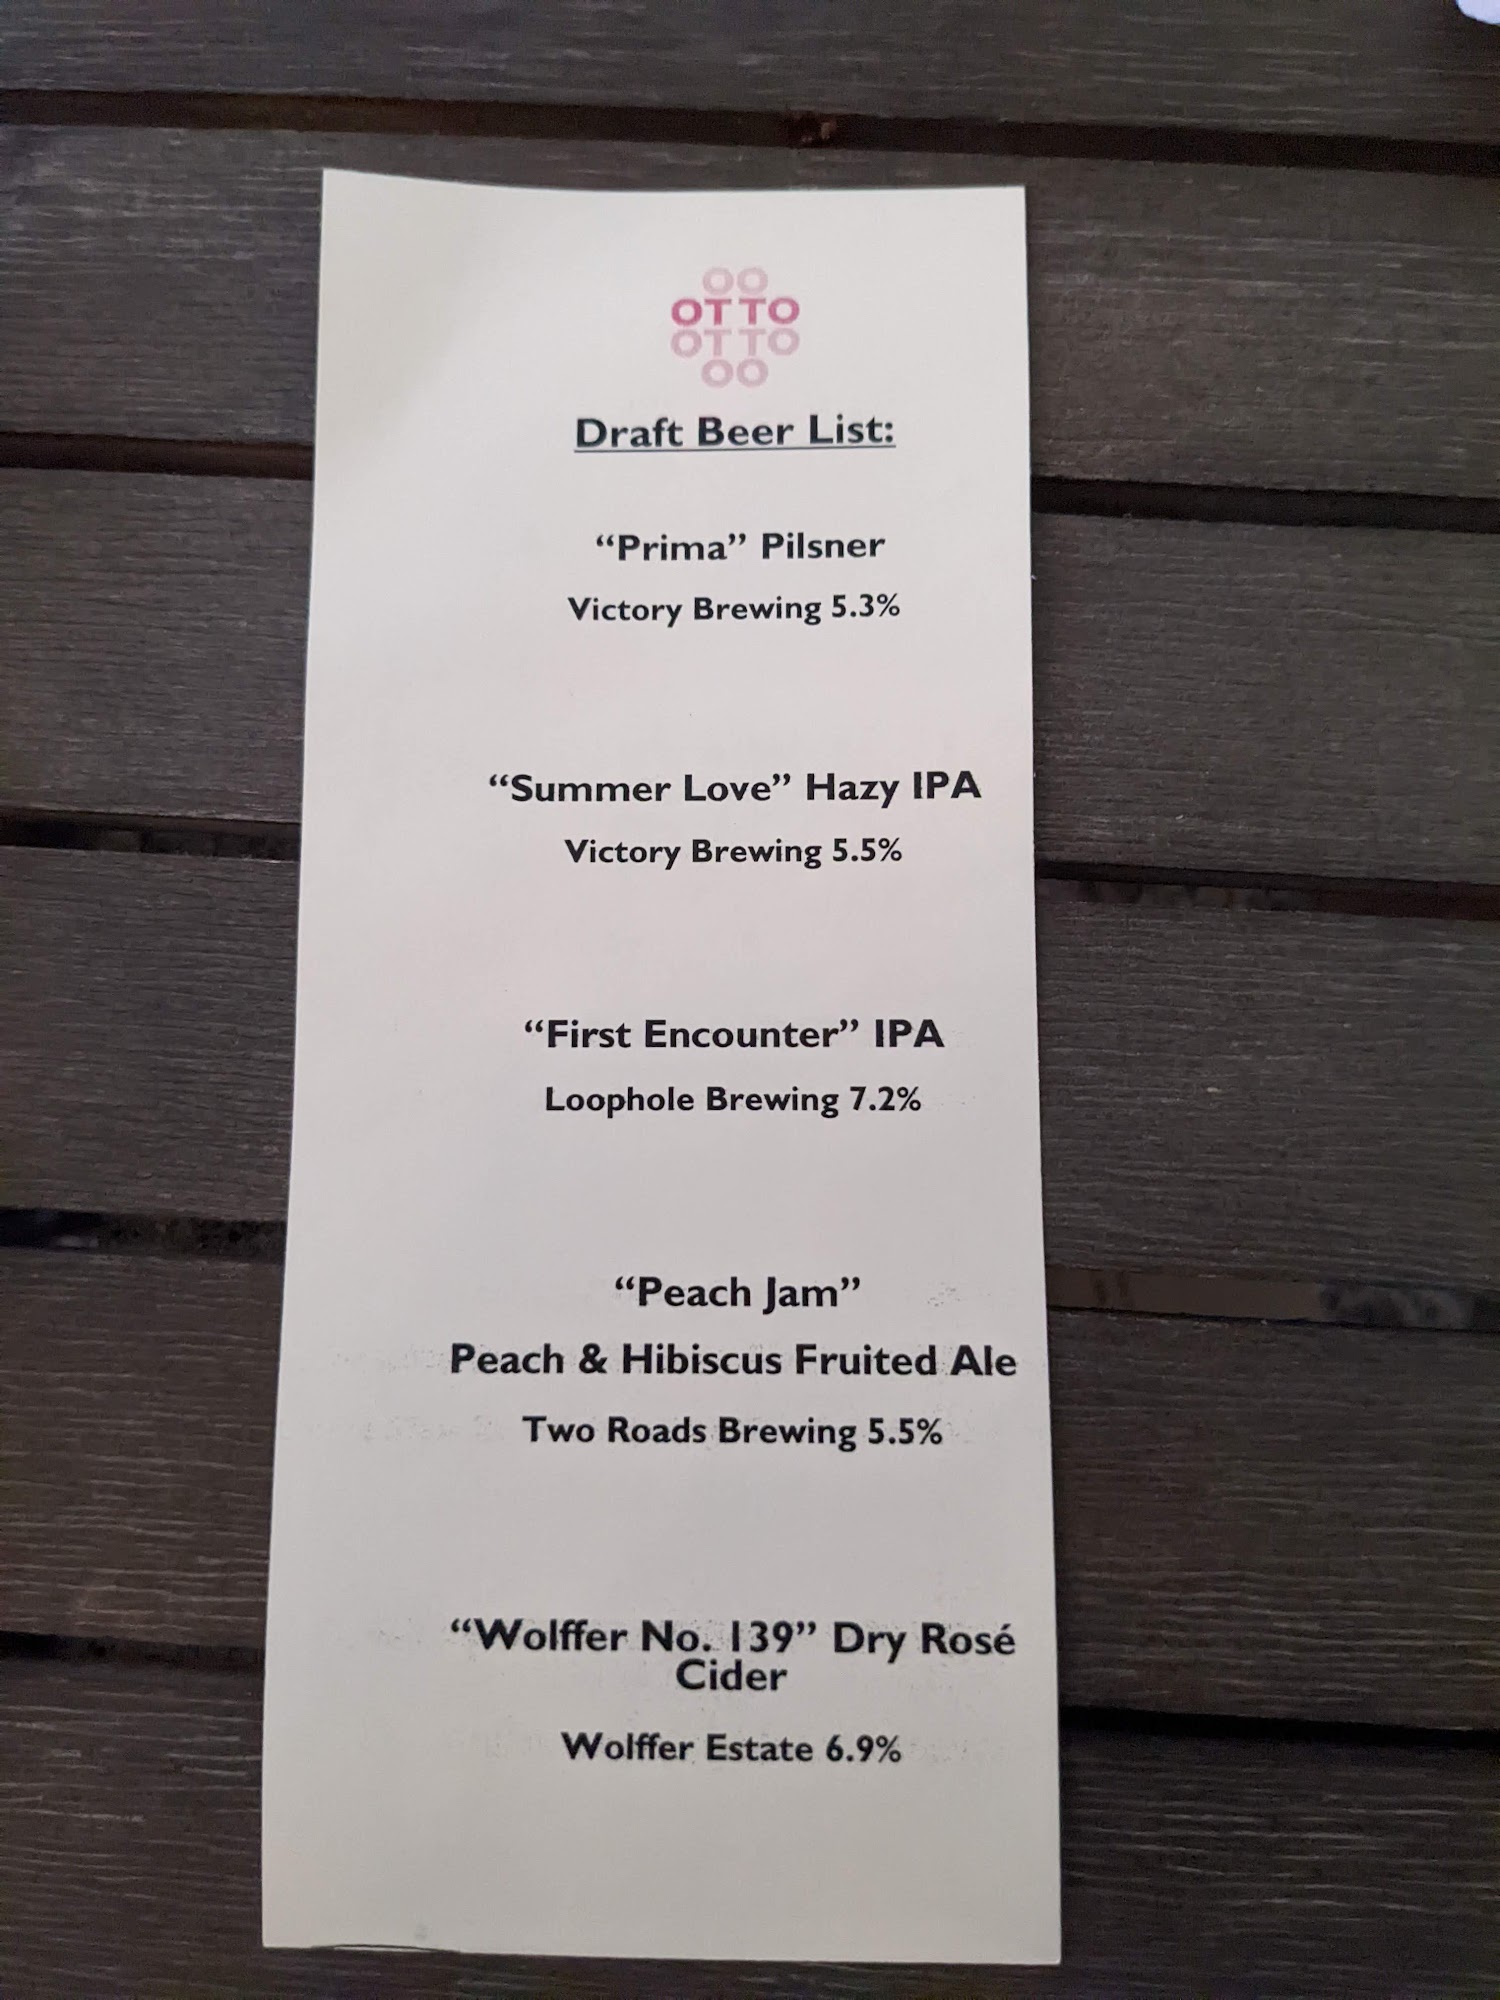 OO
OTTO
OTTO
OO
Draft Beer List:
“Prima” Pilsner
Victory Brewing 5.3%
“Summer Love” Hazy IPA
Victory Brewing 5.5%
“First Encounter” IPA
Loophole Brewing 7.2%
“Peach Jam”
Peach & Hibiscus Fruited Ale
Two Roads Brewing 5.5%
“Wolffer No. 139” Dry Rosé
Cider
Wolffer Estate 6.9%